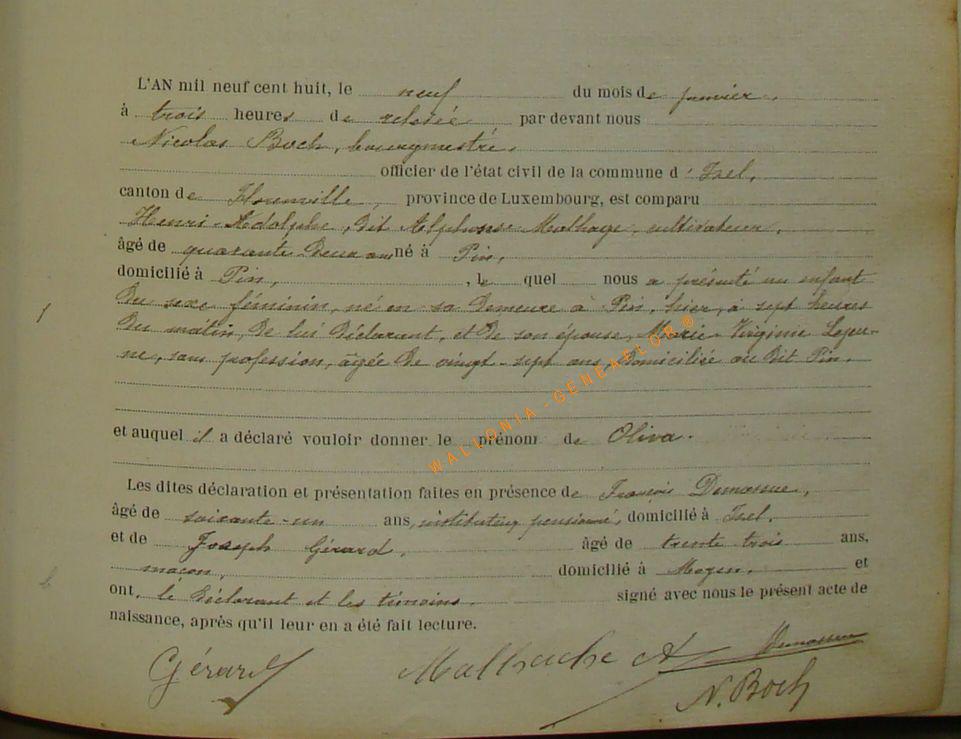 L'AN mil neuf cent huit, le neuf du mois de janvier,
à trois heures de relevée par devant nous
Nicolas Boch, bourgmestre,
officier de l'état civil de la commune d' Izel,
canton de Florenville, province de Luxembourg, est comparu
Henri-Adolphe, dit Alphonse Mathage, cultivateur,
âgé de quarante Deux ans né à Pin,
domicilié à Pin, , le quel nous a présenté un enfant
du sexe féminin, né en sa Demeure à Pin, hier, à sept heures
1 Du matin, De lui Déclarant, et De son épouse, Marie-Virginie Lejeu-
ne, sans profession, âgée De vingt-sept ans, domiciliée au dit Pin,
WALLONIA-GENEALOR®
et auquel il a déclaré vouloir donner le prénom de Oliva.
Les dites déclaration et présentation faites en présence de François
âgé de soixante-un ans, instituteur pensionné, domicilié à Izel,
et de Joseph Gérard, âgé de trente trois ans,
maçon, domicilié à Moyen, et
ont, le Déclarant et les témoins, signé avec nous le présent acte de
naissance, après qu'il leur en a été fait lecture.
Gérard
N. Boch